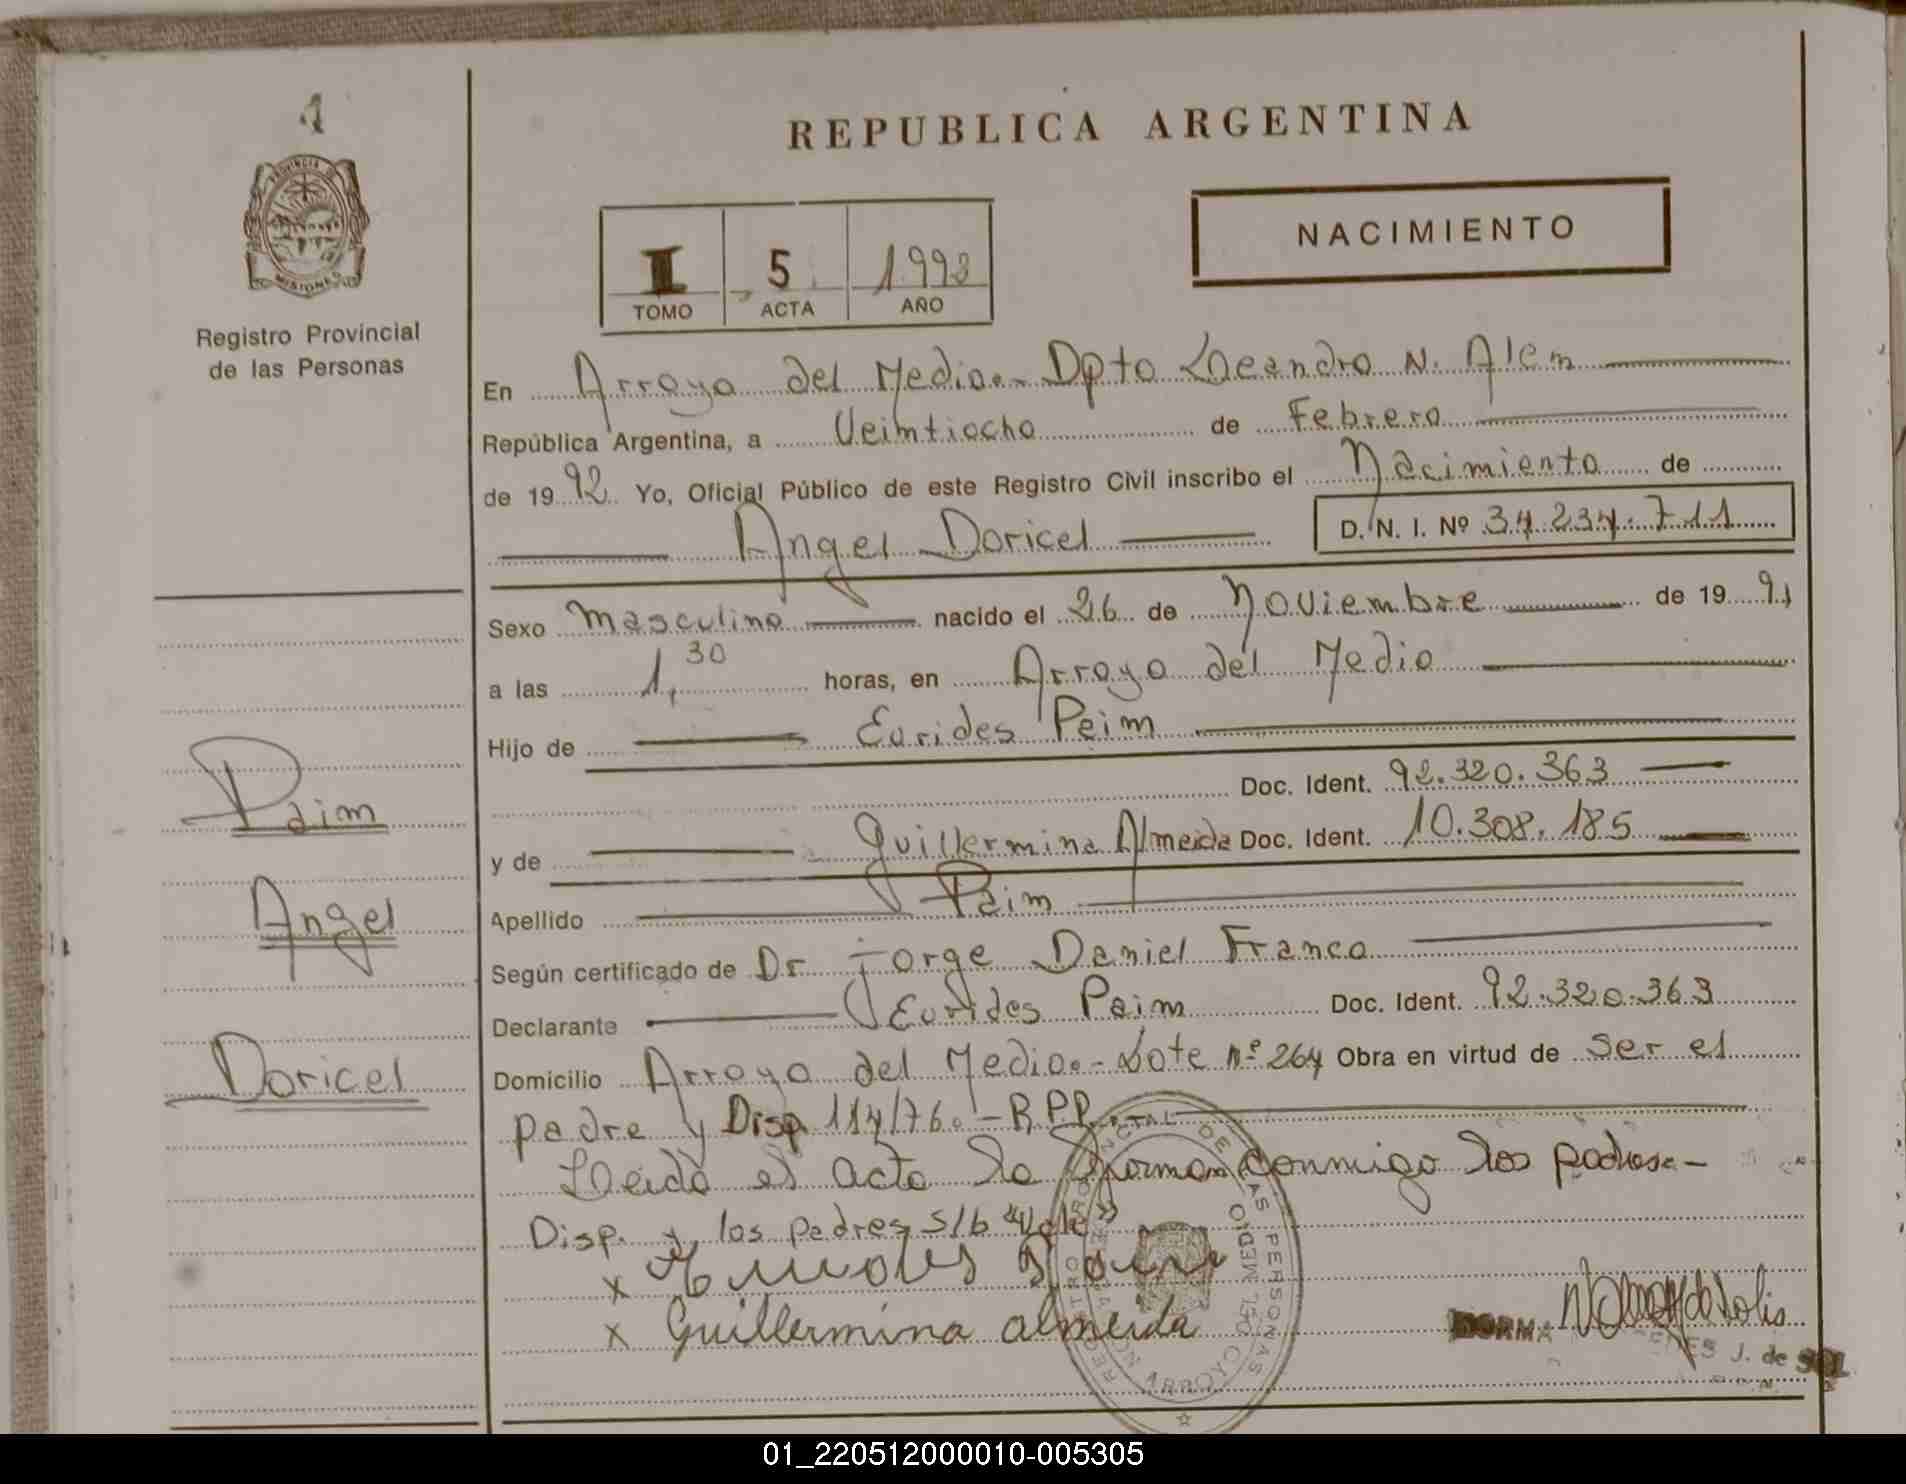 4
PROVINCIA DE
MISIONES
Registro Provincial
de las Personas
REPUBLICA ARGENTINA
I 5 1992
TOMO ACTA AÑO
NACIMIENTO
En Arroyo del Medio.- Dpto Leandro N. Alem
República Argentina, a Veimtiocho de Febrero
de 1992 Yo, Oficial Público de este Registro Civil inscribo el Nacimiento de
Angel Doricel D. N. I. Nº 34.234.711
Sexo masculino nacido el 26 de Noviembre de 1991
a las 1,30 horas, en Arroyo del Medio
Hijo de Eurides Paim
Doc. Ident. 92.320.363
y de Guillermina Almeida Doc. Ident. 10.308.185
Apellido Paim
Según certificado de Dr Jorge Daniel Franco
Declarante Eurides Paim Doc. Ident. 92.320.363
Domicilio Arroyo del Medio.- Lote nº 264 Obra en virtud de ser el
padre y Disp. 114/76.- R.P.P.
Leida el acta la firman conmigo los padres.-
Disp. y los padres s/b "Vale"
x Paim
x Guillermina almeida
NORMA
J. de
REGISTRO PROVINCIAL DE LAS PERSONAS
ARROYO DEL MEDIO
Paim
Angel
Doricel
01_220512000010-005305